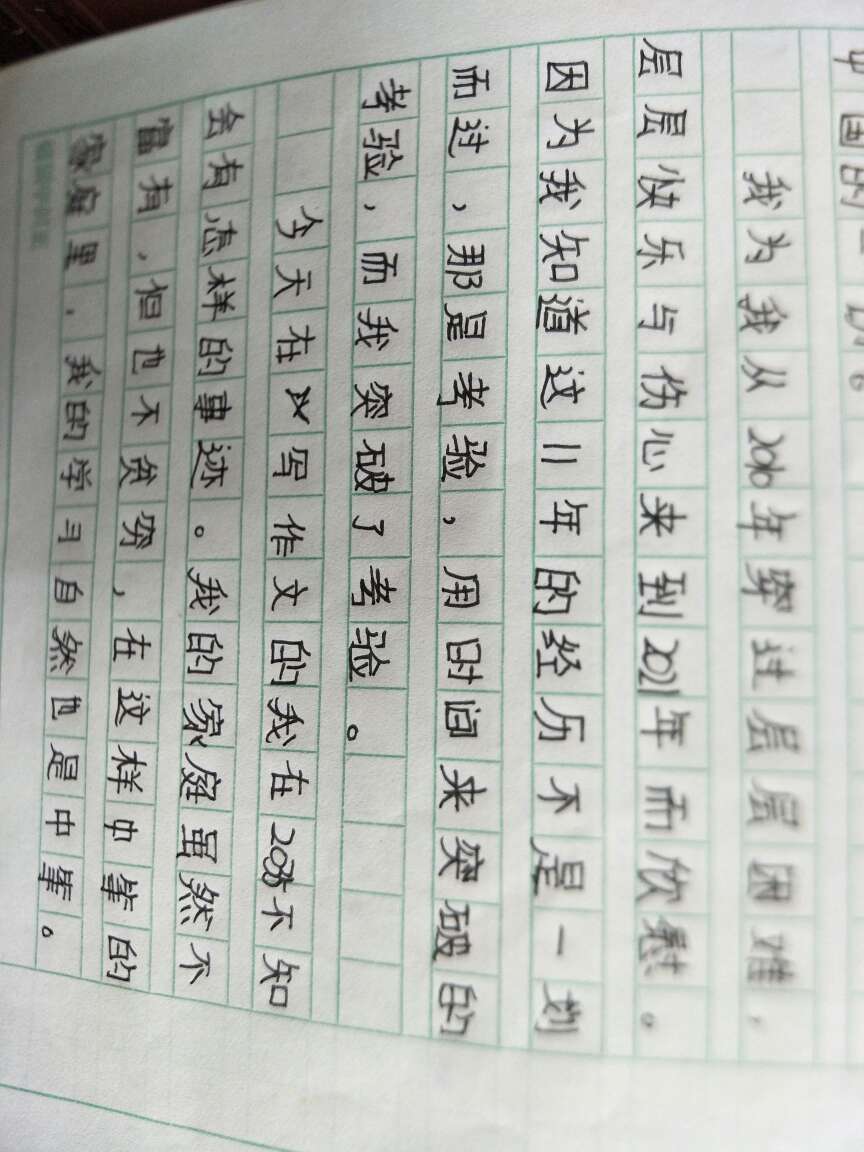 中国的一
我为我从2010年穿过层层困难，
层层快乐与伤心来到2021年而欣慰。
因为我知道这11年的经历不是一划
而过，那是考验，用时间来突破的
考验，而我突破了考验。
今天在写作文的我在2035不知
会有怎样的事迹。我的家庭虽然不
富有，但也不贫穷，在这样中等的
家庭里，我的学习自然也是中等。